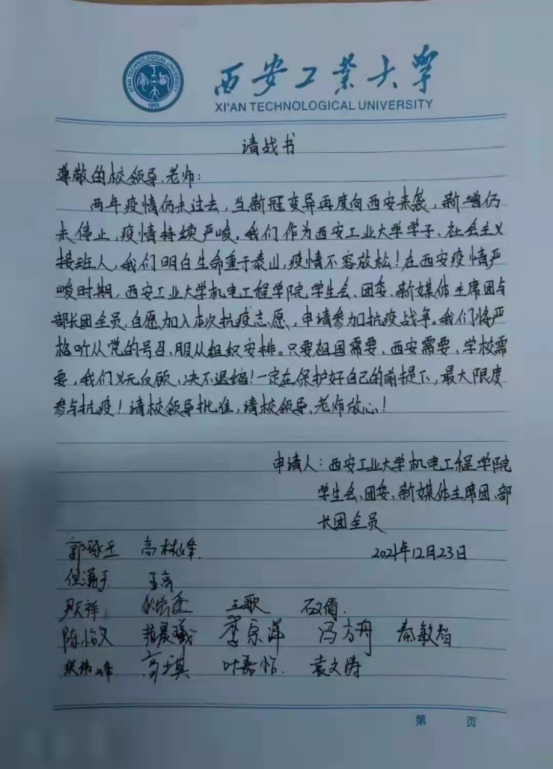 西安工业大学
XI'AN TECHNOLOGICAL UNIVERSITY
请战书
尊敬的校领导、老师:
两年疫情仍未过去,当新冠变异再度向西安来袭,新增仍
未停止,疫情持续严峻,我们作为西安工业大学学子、社会主义
接班人,我们明白生命重于泰山,疫情不容放松!在西安疫情严
峻时期,西安工业大学机电工程学院学生会、团委、新媒体主席团与
部长团全员,自愿加入本次抗疫志愿,申请参加抗疫战争。我们将严
格听从党的号召、服从组织安排。只要祖国需要、西安需要、学校需
要,我们义无反顾,决不退缩!一定在保护好自己的前提下,最大限度
参与抗疫!请校领导批准,请校领导、老师放心!
申请人:西安工业大学机电工程学院
学生会、团委、新媒体主席团、部
长团全员
2021年12月23日
郭琢玉 高彬峰
王亮
王歌
陈怡又 李乐洋 冯方舟 秦敏智
高琪 叶嘉怡 袁文涛
第 页